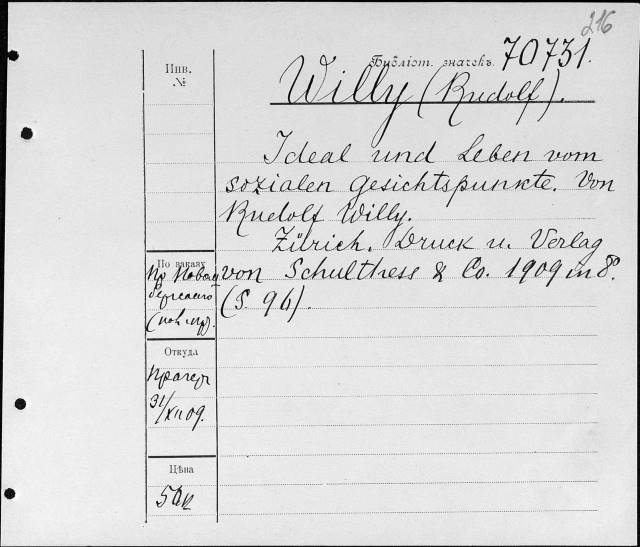 216
Инв.
№
Библіот. значекъ 70731.
Willy (Rudolf).
Ideal und Leben vom
sozialen Gesichtspunkte. Von
Rudolf Willy.
Zürich. Druck u. Verlag
von Schulthess & Co. 1909 in 8º.
(S. 96).
По заказу
Откуда
31/XII 09.
Цѣна